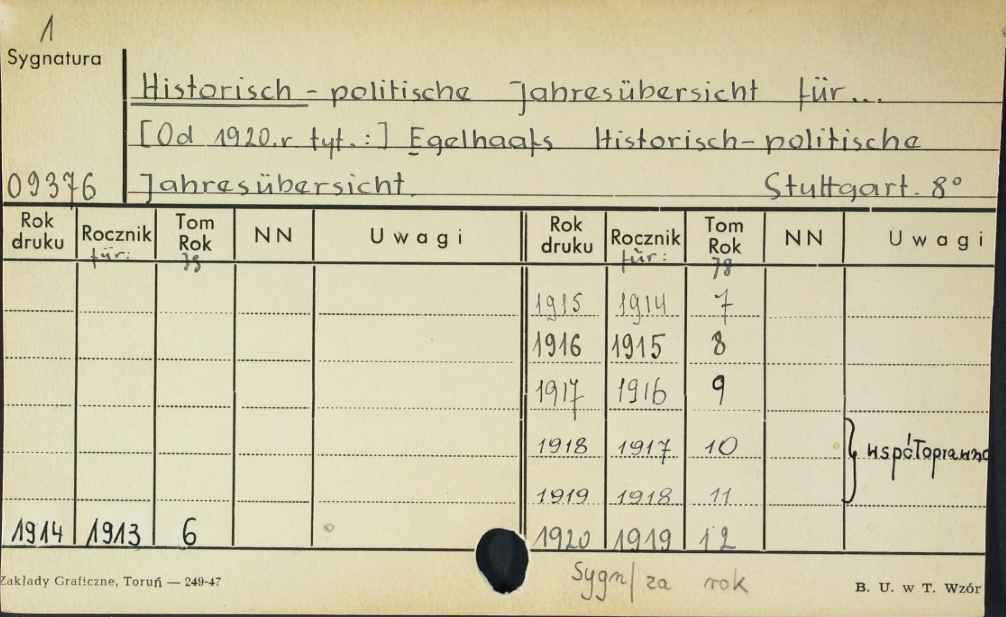 1
Sygnatura
Historisch - politische Jahresübersicht für...
[Od 1920.r tyt.:] Egelhaafs Historisch-politische
09376 Jahresübersicht. Stuttgart. 8°
Rok druku Rocznik für: Tom Rok Jg NN Uwagi Rok druku Rocznik für: Tom Rok NN Uwagi
1915 1914 7
1916 1915 8
1917 1916 9
1918 1917 10 współoprawne
1919 1918 11
1914 1913 6 1920 1919 12
Sygn/ za rok
Zakłady Graficzne, Toruń — 249-47 B. U. w T. Wzór